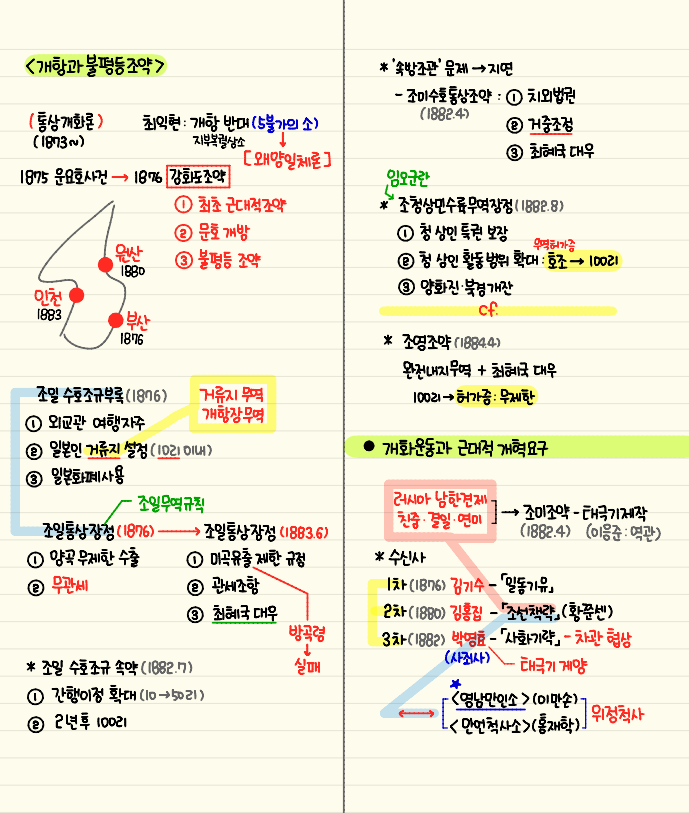 <개항과 불평등 조약>
(통상개화론)
(1873~)
최익현 : 개항 반대 (5불가의 소)
지부복궐상소
[왜양일체론]
1875 운요호사건 → 1876 강화도조약
① 최초 근대적조약
② 문호 개방
③ 불평등 조약
원산
1880
인천
1883
부산
1876
조일 수호조규부록 (1876)
① 외교관 여행자유
② 일본인 거류지 설정 (10리 이내)
③ 일본화폐사용
거류지 무역
개항장무역
조일무역규칙
조일통상장정 (1876) → 조일통상장정 (1883.6)
① 양곡 무제한 수출
② 무관세
① 미곡유출 제한 규정
② 관세조항
③ 최혜국 대우
방곡령
↓
실패
* 조일 수호조규 속약 (1882.7)
① 간행이정 확대 (10→50리)
② 2년후 100리
* '속방조관' 문제 → 지연
- 조미수호통상조약 : ① 치외법권
(1882.4)
② 거중조정
③ 최혜국 대우
임오군란
* 조청상민수륙무역장정 (1882.8)
① 청 상인 특권 보장
무역허가증
② 청 상인 활동범위 확대 : 호조 → 100리
③ 양화진·북경개잔
cf.
* 조영조약 (1884.4)
완전내지무역 + 최혜국 대우
100리→허가증 : 무제한
● 개화운동과 근대적 개혁요구
러시아 남한견제
친중·결일·연미
→ 조미조약 - 태극기제작
(1882.4) (이응준 : 역관)
* 수신사
1차 (1876) 김기수 - 「일동기유」
2차 (1880) 김홍집 - 「조선책략」 (황쭌셴)
3차 (1882) 박영효 - 「사화기략」 - 차관 협상
(사죄사)
태극기 게양
<영남만인소> (이만손)
<만언척사소> (홍재학)
위정척사